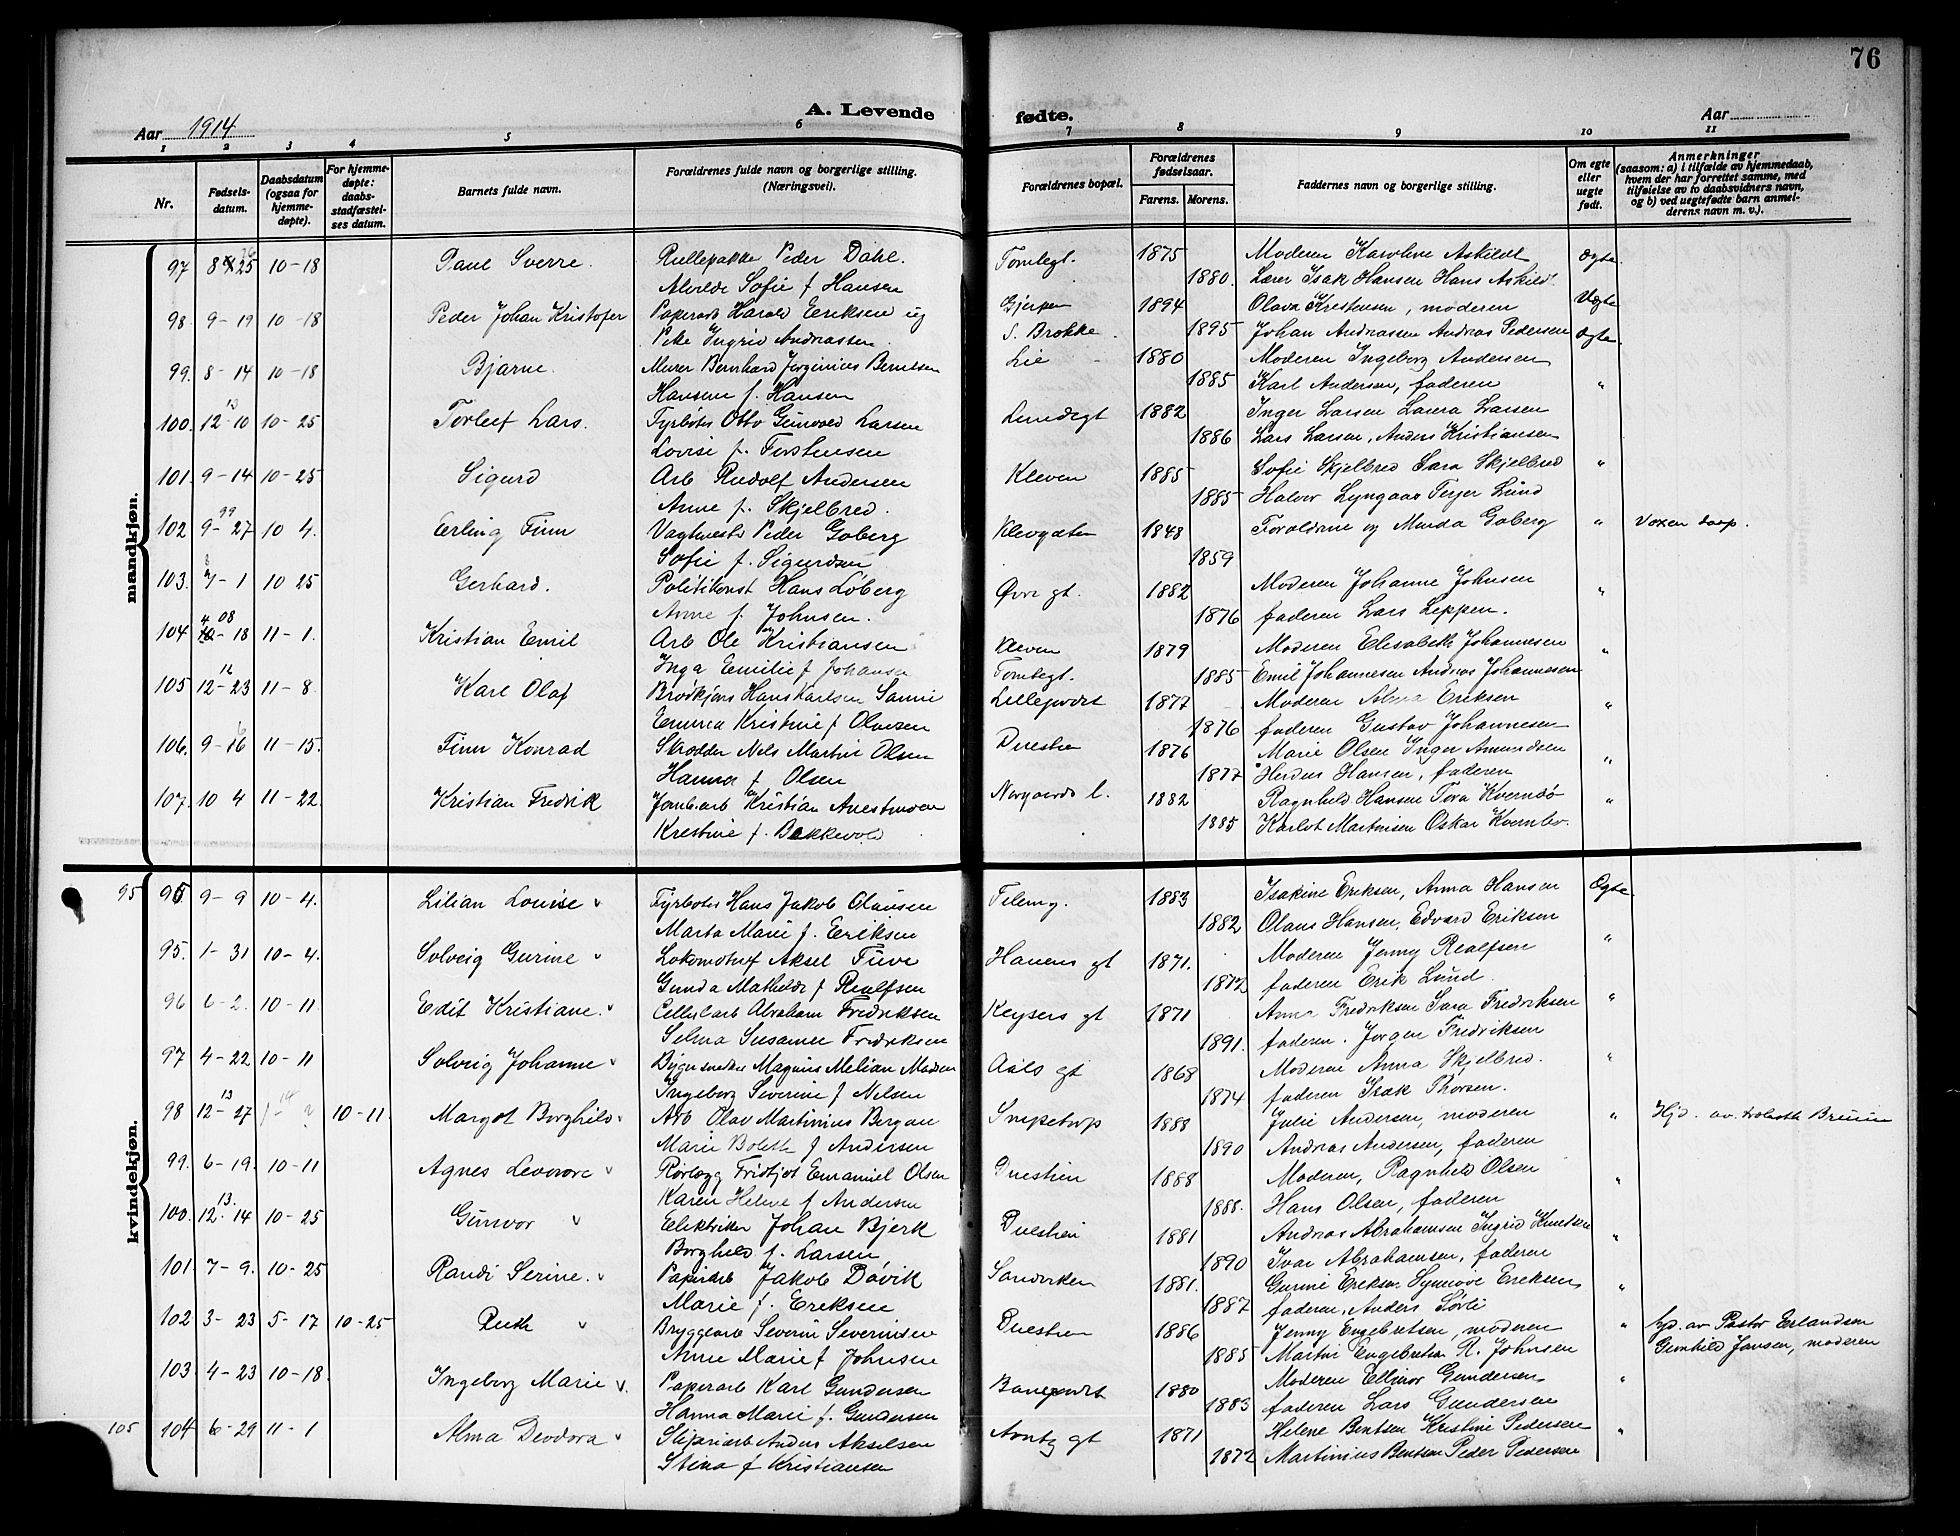 76
A. Levende fødte.
Aar 1914
Aar
1 2 3 4 5 6 7 8 9 10 11
Nr.
Fødsels-
datum.
Daabsdatum
(ogsaa for
hjemme-
døpte).
For hjemme-
døpte:
daabs-
stadfæstel-
ses datum.
Barnets fulde navn.
Forældrenes fulde navn og borgerlige stilling.
(Næringsvei).
Forældrenes bopæl.
Forældrenes
fødselsaar.
Farens. Morens.
Faddernes navn og borgerlige stilling.
Om egte
eller
uegte
født.
Anmerkninger
(saasom: a) i tilfælde av hjemmedaab,
hvem der har forrettet samme, med
tilføielse av to daabsvidners navn,
og b) ved uegtefødte barn anmel-
derens navn m. v.).
mandkjøn.
97 8 25 10-18 Paul Sverre. Peder Dahl. Tomtegt. 1875 Moderen Karoline Askildt Ægte
Alvilde Sofie f Hansen 1880. Lærer Isak Hansen Hans Askild.
98. 9-19 10-18 Peder Johan Kristofer Papirarb Harald Eriksen ug Gjerpen 1894 Olava Kristensen, moderen Uægte
Pike Ingrid Andreassen S. Brekke 1895 Johan Andreassen Andreas Pedersen Ægte
99. 8-14 10-18 Bjarne. Murer Bernhard Jørginius Berntsen Lie 1880 Moderen Ingeborg Andersen
Hansine f. Hansen 1885 Karl Andersen, faderen "
100. 12-10 13 10-25 Torleif Lars. Fyrbøter Otto Gunvald Larsen Lundegt 1882 Inger Larsen Laura Larsen
Lovise f. Torstensen 1886 Lars Larsen, Anders Kristiansen
101. 9-14 10-25 Sigurd Arb Rudolf Andersen Kleven 1885 Sofie Skjelbred Sara Skjelbred "
Anne f. Skjelbred. 1885 Halvor Lyngaas Terjer Lund
102 9-27 99 10 4. Erling Finn Vagtmester Peder Goberg Klevgaten 1848 Forældrene og Minda Goberg " Voxen daap.
Sofie f. Sigurdsen 1859
103. 7-1 10 25 Gerhard. Politikonst Hans Løberg Øvre gt. 1882 Moderen Johanne Johnsen "
Anne f. Johnsen. 1876 faderen Lars Leppen.
104 18 08 11-1. Kristian Emil Arb Ole Kristiansen Kleven 1879 Moderen Elisabeth Johannesen "
Inga Emilie f Johansen Tomtegt. 1885 Emil Johannesen Andreas Johannesen
105 12-23 12 11-8. Karl Olaf Brødkjører Hans Karlsen Sanni Lillegaardt 1877 Moderen Alma Eriksen "
Emma Kristine f Olavsen 1876 faderen Gustav Johannesen
106. 9-16 11-15. Finn Konrad Skrædder Nils Martin Olsen Duestien 1876 Marie Olsen Inger Amundsen "
Hanna f Olsen 1877 Herdus Hansen, faderen
107. 10 4 11-22. Kristian Fredrik Jernbarb Kristian Anestmoen 1882 Ragnhild Hansen Tora Kverndø "
Kristine f. Bakkevold 1885 Karlot Martinsen Oskar
kvindekjøn.
95 95 9-9 10-4. Lilian Louise v Fyrbøter Hans Jakob Olausen Telemg. 1883 Isakine Eriksen, Anna Hansen Ægte
Marta Marie f. Eriksen 1882 Olaus Hansen, Edvard Eriksen
95. 1-31 10-4. Solveig Gurine v Lokomotivf Aksel Tuve Hanens gt 1871. Moderen Jenny Realfsen "
Gunda Mathilde f Realfsen 1872 faderen Erik Lund.
96 6-2. 10-11 Edit Kristiane. v Cellularb Abraham Fredriksen Keysers gt 1871 Anna Fredriksen Sara Fredriksen "
Selma Susanne Fredriksen 1891. faderen. Jørgen Fredriksen
97 4-22 10-11 Solveig Johanne v Bygsnedker Magnus Melian Madsen Aals gt 1868 Moderen Anna Skjelbred. "
Ingeborg Severine f Nilsen 1874 faderen Isak Thorsen.
98 12-27 13 14 10-11. Margot Borghild v Arb Olav Martinius Bergan Snipetorp 1888 Julie Andersen, moderen " Hjd. av. Bruun
Marie Bolette f Andersen 1890 Andreas Andersen, faderen
99. 6-19. 10-11 Agnes Levvore v Rørlægg Fridtjof Emanuel Olsen Duestien 1888 Moderen, Ragnhild Olsen "
Karen Helene f Andersen 1888. Hans Olsen, faderen
100. 12-14 13. 10-25 Gunvor v Elektriker Johan Bjerk Duestien 1881 Andreas Abrahamsen Ingrid Knutsen "
Borghild f. Larsen 1890 Ivar Abrahamsen, faderen
101. 7-9. 10-25 Randi Serine. v Papirarb Jakob Døvik Sandviken 1881. Gurine Eriksen Synnøve Eriksen "
Marie f. Eriksen 1887 faderen, Anders Sørli
102 3-23 5-17 10-25 Ruth v Bryggearb Severin Severinsen Duestien 1886 Jenny Engebretsen, moderen " hjd. av Pastor Erlandsen
Anne Marie f Johnsen 1885 Martin Engebretsen R. Johnsen Gunhild Jansen, moderen
103 4-23 10-18. Ingeborg Marie v. Papirarb Karl Gundersen Banegaardt 1880 Moderen Ellinor Gundersen "
Hanna Marie f. Gundersen 1883 faderen Lars Gundersen
105 104 6-29 11-1 Alma Deodora v Sliperiarb Anders Akselsen gt 1871 Helene Bentsen Kristine Pedersen "
Stina f Kristiansen 1872 Martinius Bentsen Peder Pedersen